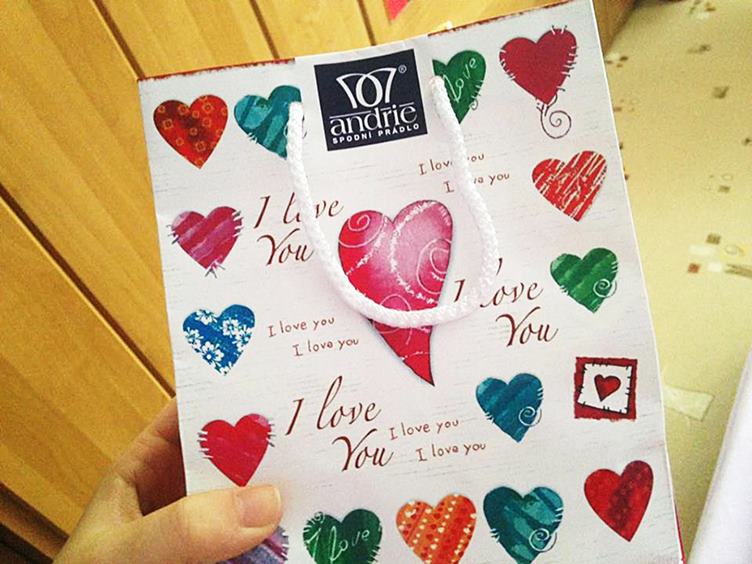 andrie®
SPODNÍ PRÁDLO
love
I love you
I love you
I love
You
I love
You
I love you
I love you
I love
You
I love you
I love you
love